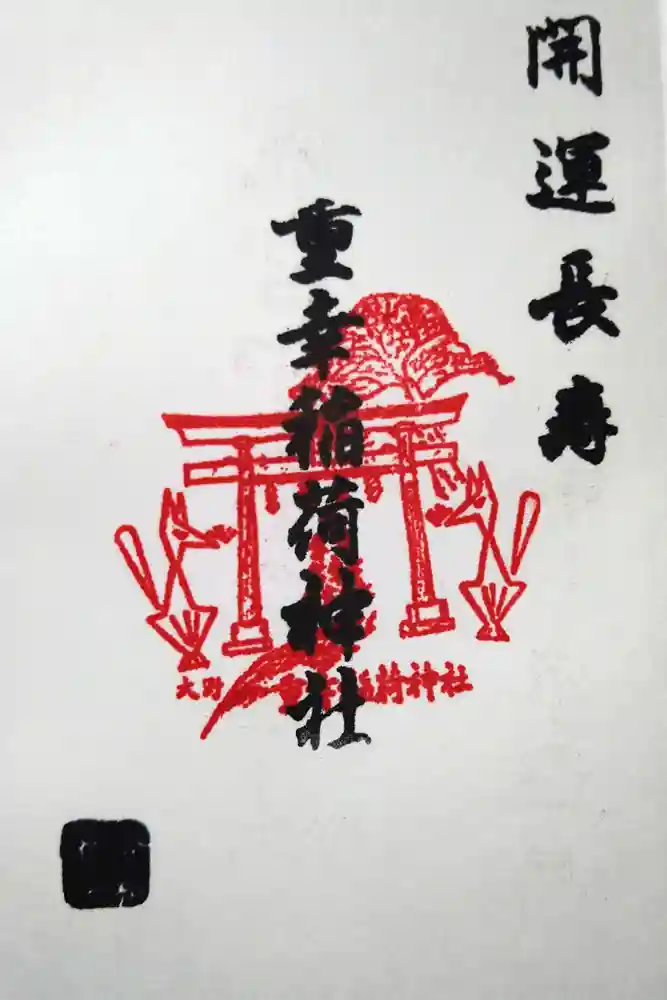 開運長寿
重幸稲荷神社
大野 重幸稲荷神社